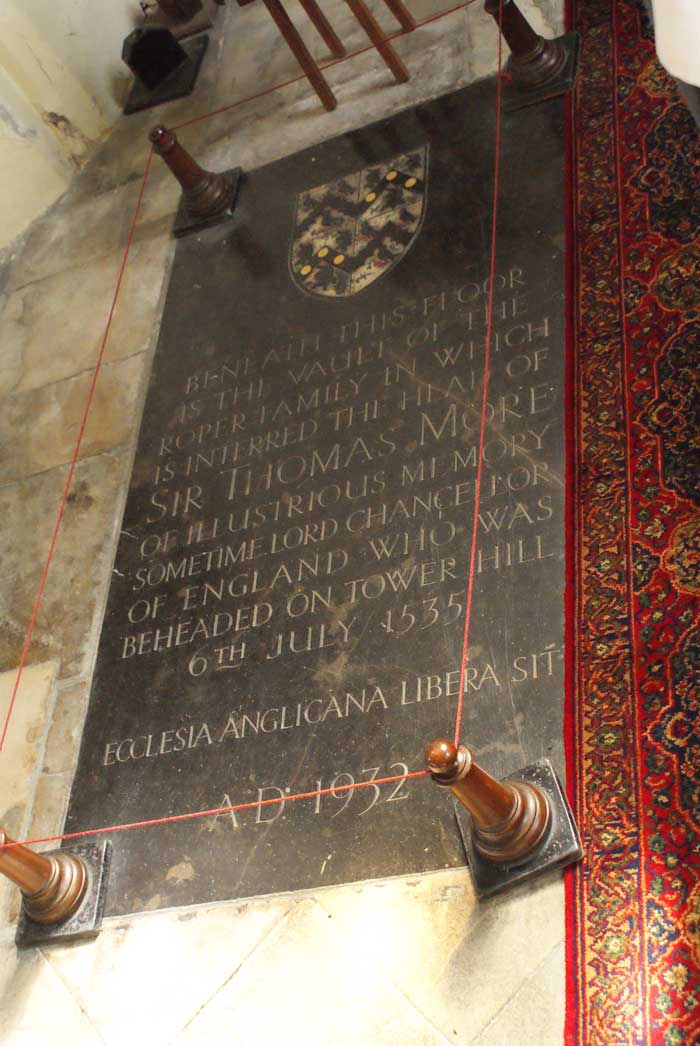 BENEATH THIS FLOOR
IS THE VAULT OF THE
ROPER FAMILY IN WHICH
IS INTERRED THE HEAD OF
SIR THOMAS MORE
OF ILLUSTRIOUS MEMORY
SOMETIME LORD CHANCELLOR
OF ENGLAND WHO WAS
BEHEADED ON TOWER HILL
6TH JULY 1535
ECCLESIA ANGLICANA LIBERA SIT
A.D. 1932